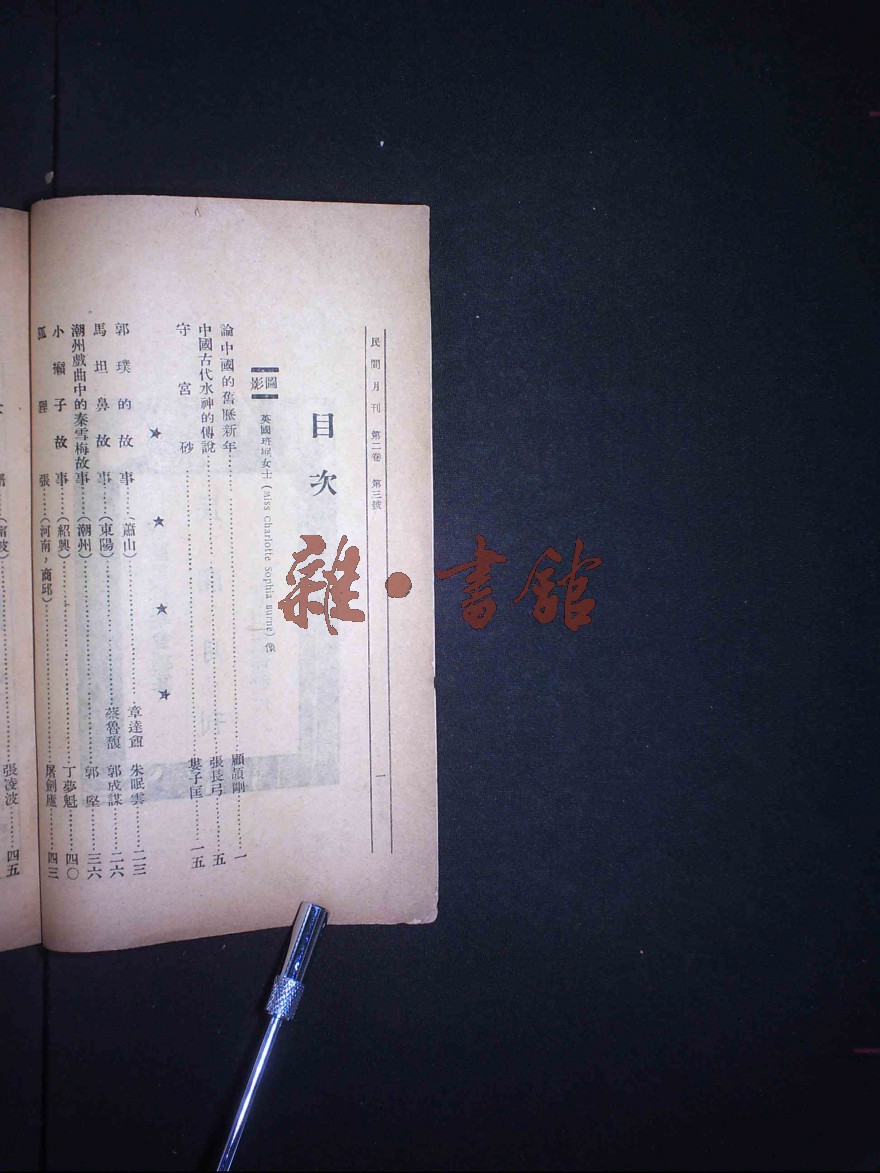 民間月刊 第二卷 第三號
一
目次
圖影
英國班 女士 (Miss Charlotte Sophia Burne) 像
論中國的舊歷新年……顧頡剛……一
中國古代水神的傳說……張長弓……五
守宮砂……婁子匡……一五
★ ★ ★ ★
郭璞的故事……(蕭山)……章達 朱眠雲……二三
馬坦鼻故事……(東陽)……蔡魯馥 郭成謀……二六
潮州戲曲中的秦雪梅故事……(潮州)……郭堅……三六
小癩子故事……(紹興)……丁夢魁……四〇
狐狸 張……(河南，商邱)……屠劍廬……四三
張凌波……四五
雜·書館